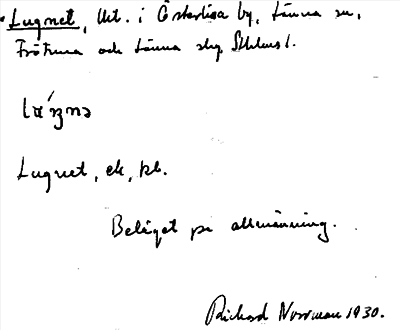 Lugnet, lht. i Österlisa by, Länna sn,
Frötuna och Länna skg. Sthlms l.
Lugnet, ek, kb.
Beläget på allmänning.
Richard Norrman 1930.